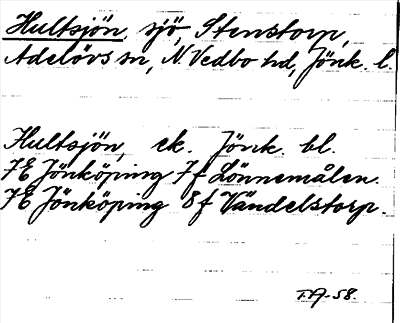 Hultsjön, sjö, Stenstorp,
Adelövs sn, N Vedbo hd, Jönk. l.
Hultsjön, ek. Jönk bl.
7E Jönköping 7f Lönnemålen.
7E Jönköping 8f Vändelstorp.
T.A-58.